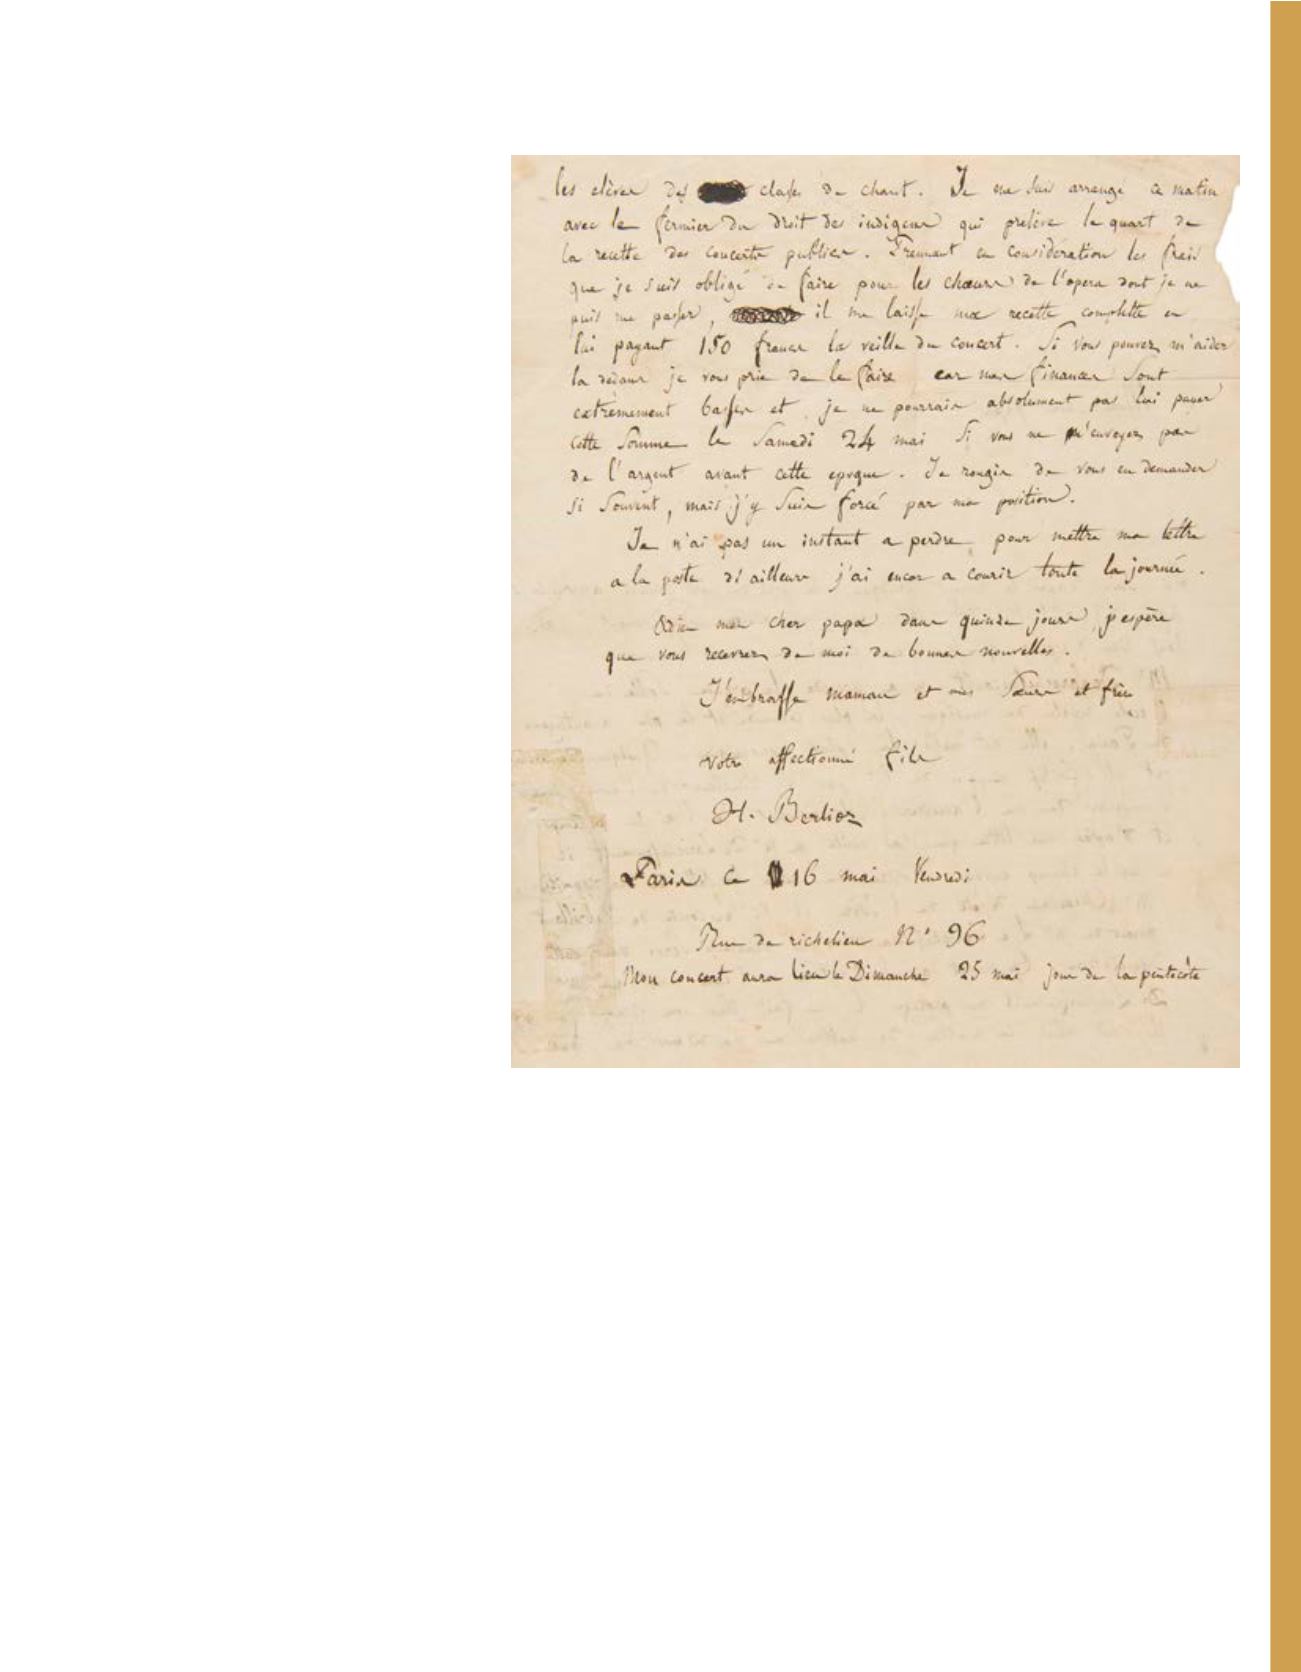 les elèves des classes de chant. Je me suis arrangé ce matin
avec le fermier du droit des indigens qui prelève le quart de
la recette des concerts publics. Prennant en considération les frais
que je suis obligé de faire pour les chœurs de l'opera dont je ne
puis me passer, il me laisse ma recette complette en
lui payant 150 francs la veille du concert. Si vous pouvez m'aider
la dedans je vous prie de le faire car mes finances sont
extrèmement basses et je ne pourrais absolument pas lui payer
cette somme le Samedi 24 mai si vous ne m'envoyez pas
de l'argent avant cette epoque. Je rougis de vous en demander
si souvent, mais j'y suis forcé par ma position.
Je n'ai pas un instant a perdre pour mettre ma lettre
a la poste d'ailleurs j'ai encor a courir toute la journée.
Adieu mon cher papa dans quinze jours j'espère
que vous recevrez de moi de bonnes nouvelles.
J'embrasse maman et mes sœurs et frère
votre affectionné fils
H. Berlioz
Paris ce 16 mai Vendredi
Rue de richelieu N° 96
Mon concert aura lieu le Dimanche 25 mai jour de la pentecôte